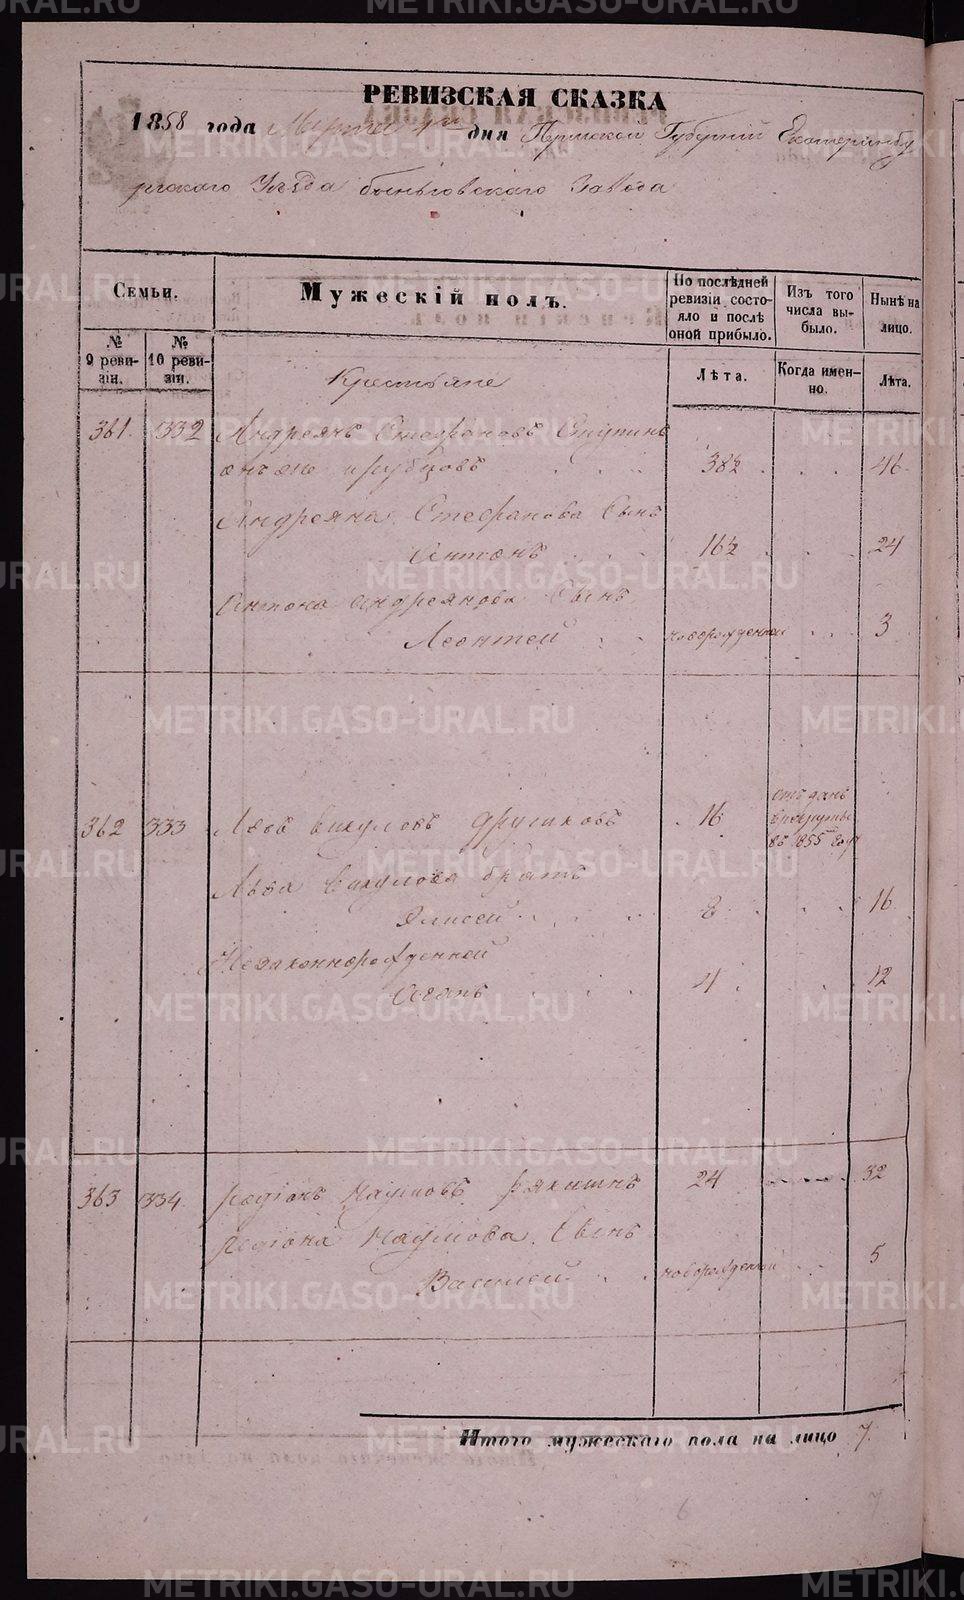 РЕВИЗСКАЯ СКАЗКА
1858 года Марта 4го дня Пермской Губерніи Екатеринбу
ргскаго Уѣзда Быньговскаго Завода
Семьи.
Мужескій полъ.
По послѣдней ревизіи состояло и послѣ оной прибыло.
Изъ того числа выбыло.
Нынѣ на лицо.
№ 9 ревизіи.
№ 10 ревизіи.
Крестьяне
Лѣта.
Когда именно.
Лѣта.
361. 332 Андреянъ Стефановъ
онъ же 38½ 46
Андреяна Стефанова Сынъ
Антонъ 16½ 24
Антона Андреянова Сынъ
Леонтей новорожденной 3
362 333 Левъ Викуловъ 16 отъданъ
въ рекруты
въ 1855 году
Льва Викулова братъ
Елисей 8 16
Незаконнорожденной
4 12
363 334 Родіонъ Наумовъ 24 32
Родіона Наумова Сынъ
Василей новорожденной 5
Итого мужескаго пола на лицо 7
6 7
METRIKI.GASO-URAL.RU